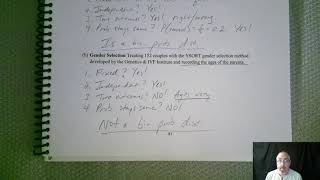 2. Independent? Yes!
3. Two outcomes? Yes! right/wrong
4. Prob stays same? P(correct)=1/5=0.2 Yes!
Is a bin prob dist
(b) Gender Selection Treating 152 couples with the YSORT gender selection method
developed by the Genetics & IVF Institute and recording the ages of the parents.
1. Fixed? Yes!
2. Independent? Yes!
3. Two outcomes? NO! Ages vary
4. Prob stays same? NO!
Not a bin prob dist